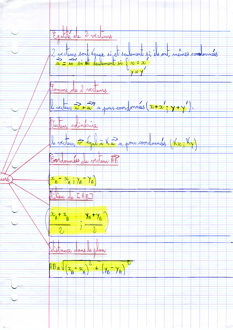 Égalité de 2 vecteurs
2 vecteurs sont égaux si et seulement si ils ont mêmes coordonnées
u = u' si et seulement si { x = x'
y = y'
Somme de 2 vecteurs
le vecteur u + u' a pour coordonnées (x+x' ; y+y')
Vecteur colinéaire
le vecteur v égal à K u a pour coordonnées (Kx ; Ky)
Coordonnées du vecteur AB
x_B - x_A ; y_B - y_A
Milieu de [AB]
(x_A + x_B)/2 ; (y_A + y_B)/2
Distance dans le plan
AB = √((x_B - x_A)² + (y_B - y_A)²)